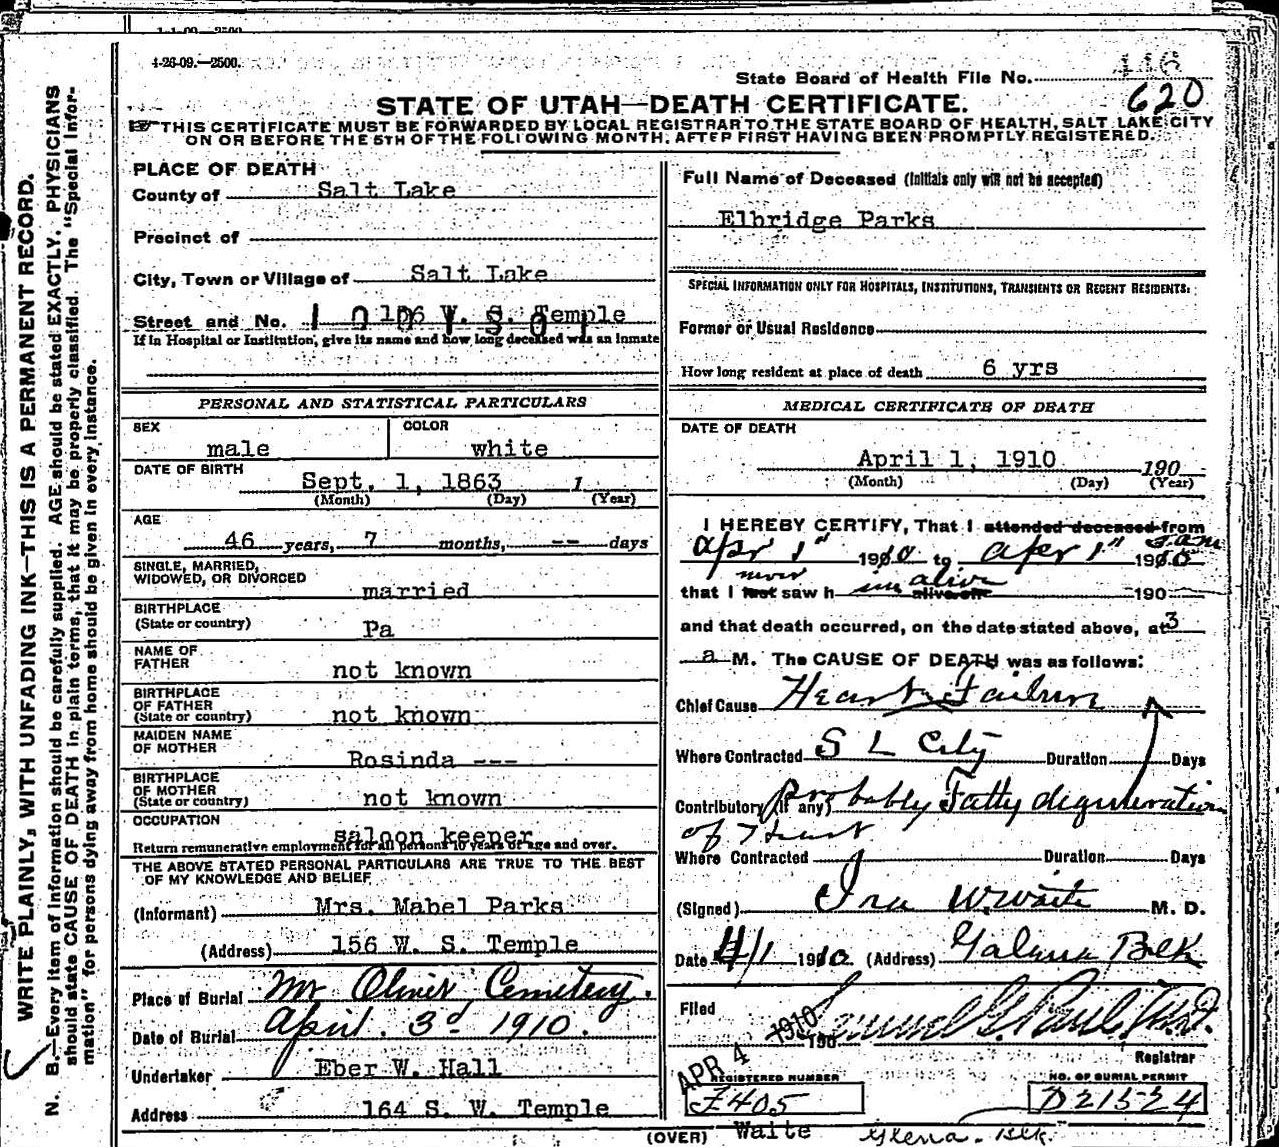 4-26-09.—2500.
State Board of Health File No. 446
620
STATE OF UTAH—DEATH CERTIFICATE.
THIS CERTIFICATE MUST BE FORWARDED BY LOCAL REGISTRAR TO THE STATE BOARD OF HEALTH, SALT LAKE CITY
ON OR BEFORE THE 5TH OF THE FOLLOWING MONTH, AFTER FIRST HAVING BEEN PROMPTLY REGISTERED.
WRITE PLAINLY, WITH UNFADING INK—THIS IS A PERMANENT RECORD.
N. B.—Every item of information should be carefully supplied. AGE should be stated EXACTLY. PHYSICIANS
should state CAUSE OF DEATH in plain terms, that it may be properly classified. The "Special Infor-
mation" for persons dying away from home should be given in every instance.
PLACE OF DEATH
County of Salt Lake
Precinct of
City, Town or Village of Salt Lake
Street and No. 156 W. S. Temple
If in Hospital or Institution, give its name and how long deceased was an inmate
PERSONAL AND STATISTICAL PARTICULARS
SEX male COLOR white
DATE OF BIRTH Sept. 1, 1863 1
(Month) (Day) (Year)
AGE
46 years, 7 months, -- days
SINGLE, MARRIED,
WIDOWED, OR DIVORCED married
BIRTHPLACE
(State or country) Pa
NAME OF
FATHER not known
BIRTHPLACE
OF FATHER
(State or country) not known
MAIDEN NAME
OF MOTHER Rosinda ---
BIRTHPLACE
OF MOTHER
(State or country) not known
OCCUPATION saloon keeper
Return remunerative employment for all persons 10 years of age and over.
THE ABOVE STATED PERSONAL PARTICULARS ARE TRUE TO THE BEST
OF MY KNOWLEDGE AND BELIEF
(Informant) Mrs. Mabel Parks
(Address) 156 W. S. Temple
Place of Burial Mt Olivet Cemetery.
Date of Burial April. 3d 1910.
Undertaker Eber W. Hall
Address 164 S. W. Temple
Full Name of Deceased (Initials only will not be accepted)
Elbridge Parks
SPECIAL INFORMATION ONLY FOR HOSPITALS, INSTITUTIONS, TRANSIENTS OR RECENT RESIDENTS:
Former or Usual Residence
How long resident at place of death 6 yrs
MEDICAL CERTIFICATE OF DEATH
DATE OF DEATH
April 1, 1910 190
(Month) (Day) (Year)
I HEREBY CERTIFY, That I attended deceased from
Apr 1" 1910 to Apr 1" 1910
that I last never saw him alive alive on 190
and that death occurred, on the date stated above, at 3
a M. The CAUSE OF DEATH was as follows:
Chief Cause Heart Failure
Where Contracted S L City Duration Days
Contributory (if any) Probably Fatty degeneration
of Heart
Where Contracted Duration Days
(Signed) Ira W. Waite M. D.
Date 4/1 1910 (Address) Galena Blk
Filed APR 4 1910 190 Samuel G. Paul, M.D.
Registrar
REGISTERED NUMBER NO. OF BURIAL PERMIT
F405 D21524
(OVER) Waite Glena. Blk.